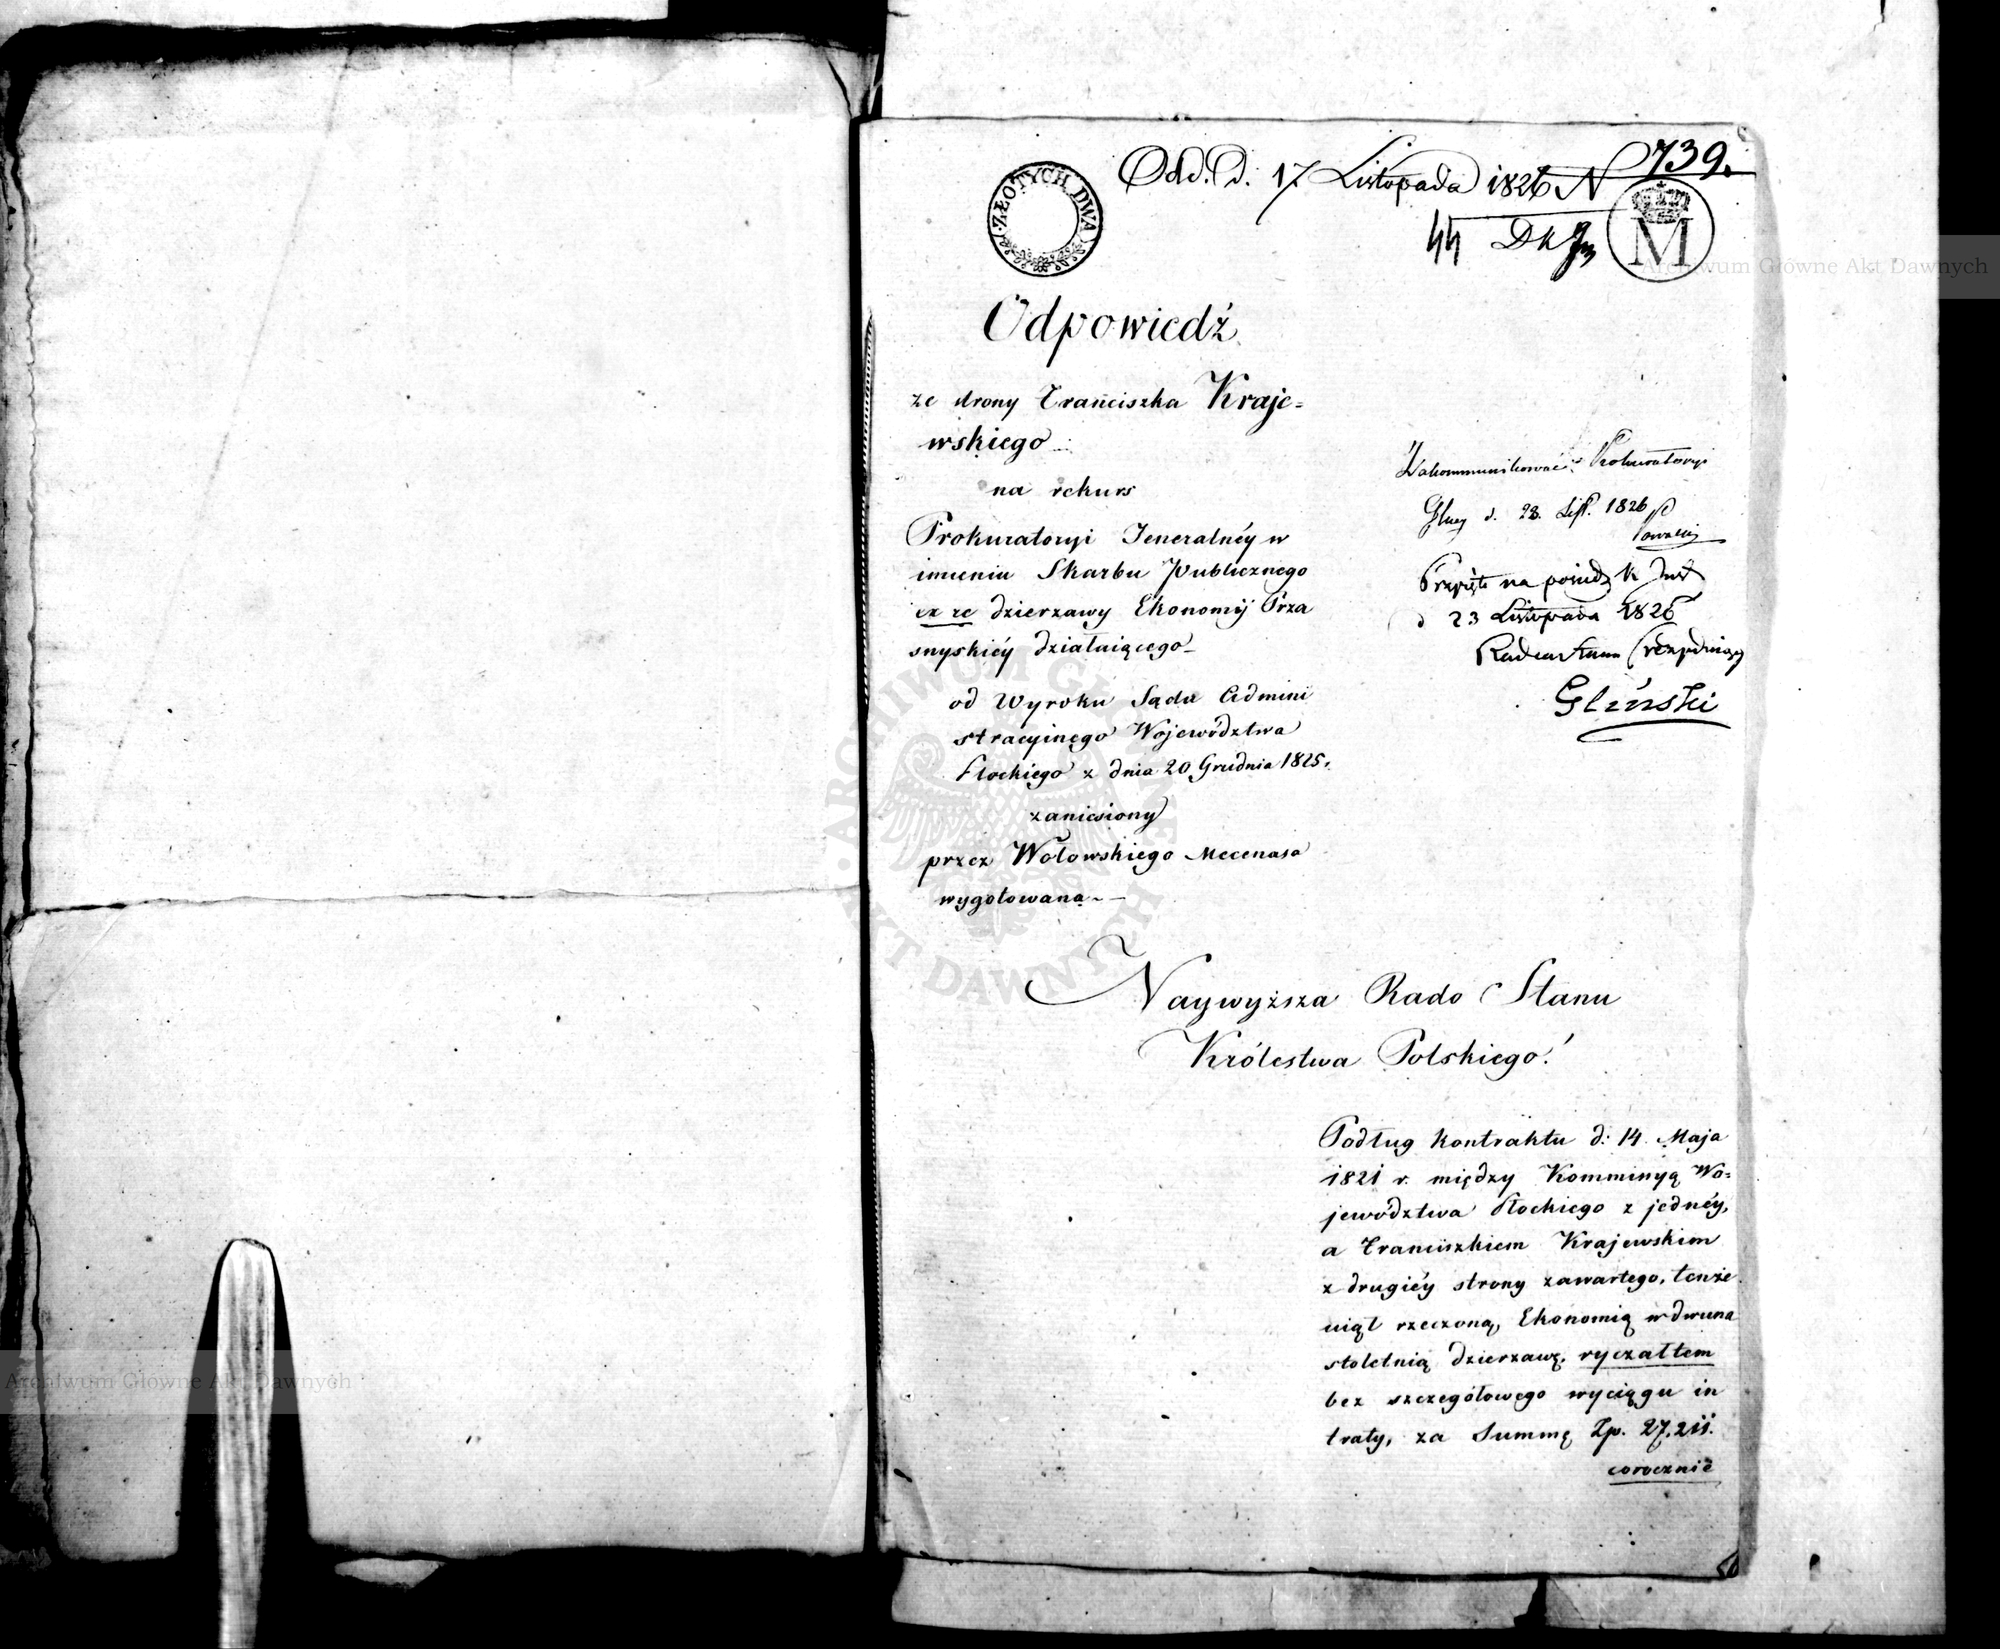 Odd. D. 17 Listopada 1826 N 739.
44
ZŁOTYCH DWA
M
Odpowiedź
ze strony Franciszka Kraje=
wskiego
na rekurs
Prokuratoryi Jeneralnéy w
imieniu Skarbu Publicznego
ex re dzierzawy Ekonomij Prza
snyskiéy działaiącego
od Wyroku Sądu Admini
stracyinego Województwa
Płockiego z dnia 20 Grudnia 1825.
zaniesiony
przez Wołowskiego Mecenasa
wygotowana
Zakommunikować Prokuratoryi
d. 23. List. 1826
23 Listopada 1826
Gliński
Naywyższa Rado Stanu
Królestwa Polskiego!
Podług Kontraktu d: 14 Maja
1821 r. między Kommissyą Wo=
jewództwa Płockiego z jednéy,
a Franciszkiem Krajewskim
z drugiéy strony zawartego, tenże
wiął rzeczoną Ekonomią w dwuna
stoletnią dzierzawę, ryczałtem
bez szczegółowego wyciągu in
traty, za Summę Zp. 27,211.
corocznie
ARCHIWUM GŁÓWNE AKT DAWNYCH
Archiwum Główne Akt Dawnych
Archiwum Główne Akt Dawnych